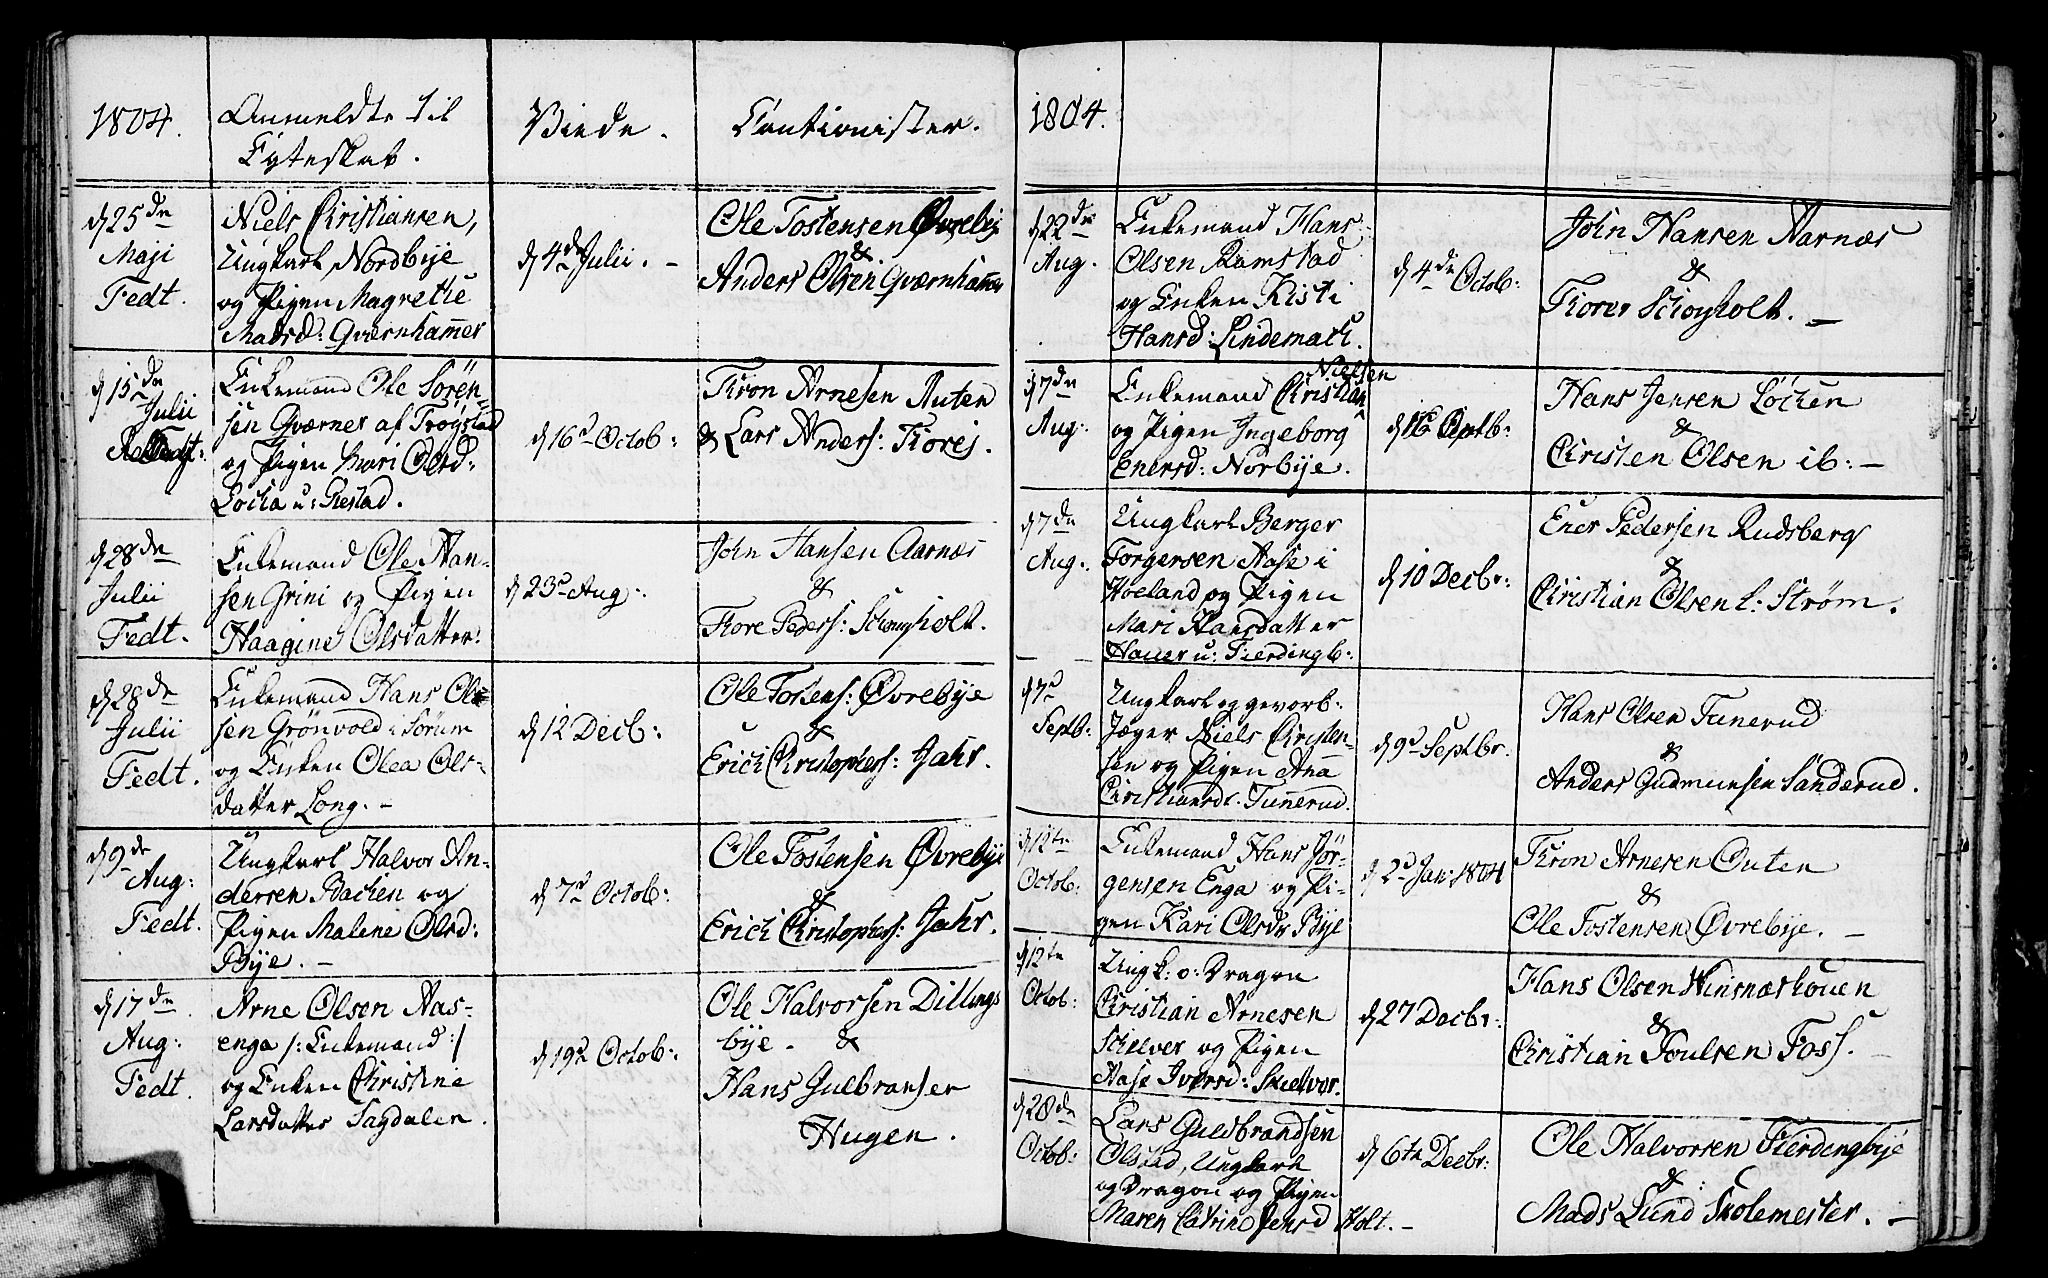 1804.
Anmeldte til
Egteskab.
Viede.
Cautionister.
d 25de
Maji
Fedt.
Niels Christiansen,
Ungkarl, Nordbye
og Pigen Magrethe
Madsd: Gværnham̄er
d 4de Julii. –
Ole Tostensen Øvrebij
&
Anders Olsen Gværnham̄er
d 15de
Julii
Fedt:
Enkemand Ole Sören-
sen Gværner af Trögstad
og Pigen Mari Olsd:
Locka u: Restad.
d 16d Octob:
Thron Arnesen Auten
& Lars Anders: Thorej.
d 28de
Julii
Fedt.
Enkemand Ole Han-
sen Grini og Pigen
Haagine Olsdatter:
d 23d Aug:
John Hansen Aarnæs
&
Thore Peders: Schouyholt.
d 28de
Julii
Fedt.
Enkemand Hans Ole-
sen Grönvold i Sörum
og Enken Olea Ols-
datter Long. –
d 12 Decb:
Ole Tostens: Øvrebye
&
Erich Christophers: Jahr.
d 9de
Aug:
Fedt.
Ungkarl Halvor An-
dersen Bachen og
Pigen Malene Olsd:
Bye. –
d 7d Octob:
Ole Tostensen Øvrebye
&
Erich Christophers: Jahr.
d 17de
Aug:
Fedt.
Arne Olsen Aas-
enga /: Enkemand :/
og Enken Christine
Larsdatter Sagdalen.
d 19d Octob:
Ole Halvorsen Dillings
bye. &
Hans Gulbransen
Hugen.
1804.
d 22de
Aug.
Enkemand Hans
Olsen Ramstad
og Enken Kisti
Hansd: Lindemark.
d 4de Octob:
John Hansen Aarnæs
&
Thorer Schoyholt. –
d 7de
Aug:
Nielsen
Enkemand Christian
og Pigen Ingeborg
Enersd: Norbye.
Hans Jensen Löchen
&
Christen Olsen ib: –
d 7de
Aug:
Ungkarl Berger
Torgersen Aase i
Höeland og Pigen
Mari Hansdatter
Hauer u: Fierdingb:
d 10 Decbr:
Ener Pedersen Rudsberg
&
Christian Olsen t: Strøm.
d 7d
Septb:
Ungkarl og gevorb:
Jæger Niels Christen-
sen og Pigen An̄a
Christiansd: Tun̄erud.
d 9d Septbr.
Hans Olsen Tunerud
&
Anders Gudmunsen Sanderud.
d 12te
Octob:
Enkemand Hans Jör-
gensen Enga og Pi-
gen Kari Olsdr Bye
d 2d Jan: 1804
Thron Arnesen Outen
&
Ole Tostensen Øvrebye. –
d 12te
Octob:
Ungk: o: Dragon
Christian Arnesen
Schelver og Pigen
Aase Iversd: Skielver.
d 27 Decbr:
Hans Olsen Winsnæskouen
&
Christian Poulsen Foss. –
d 28de
Octob:
Lars Guldbrandsen
Olstad, Ungkarl
og Dragon og Pigen
Maren Catrine Jensd Holt. –
d 6te Decbr:
Ole Halvorsen Fierdingbye
&
Mads Lund Skolemester. –